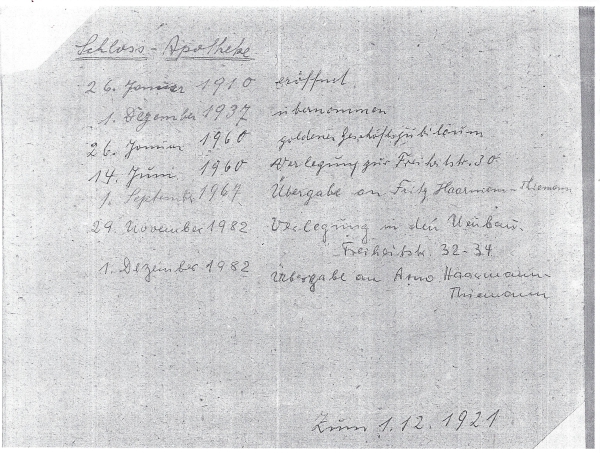 Schloss-Apotheke
26. Januar 1910 eröffnet
1. Dezember 1937 übernommen
26. Januar 1960 goldenes Geschäftsjubiläum
14. Juni 1960 Verlegung zur Freiheitstr. 30
1. September 1967 Übergabe an Fritz Haarmann-Thiemann
29. November 1982 Verlegung in den Neubau.
Freiheitstr. 32-34
1. Dezember 1982 Übergabe an Arno Haarmann-
Thiemann
Zum 1.12.1921